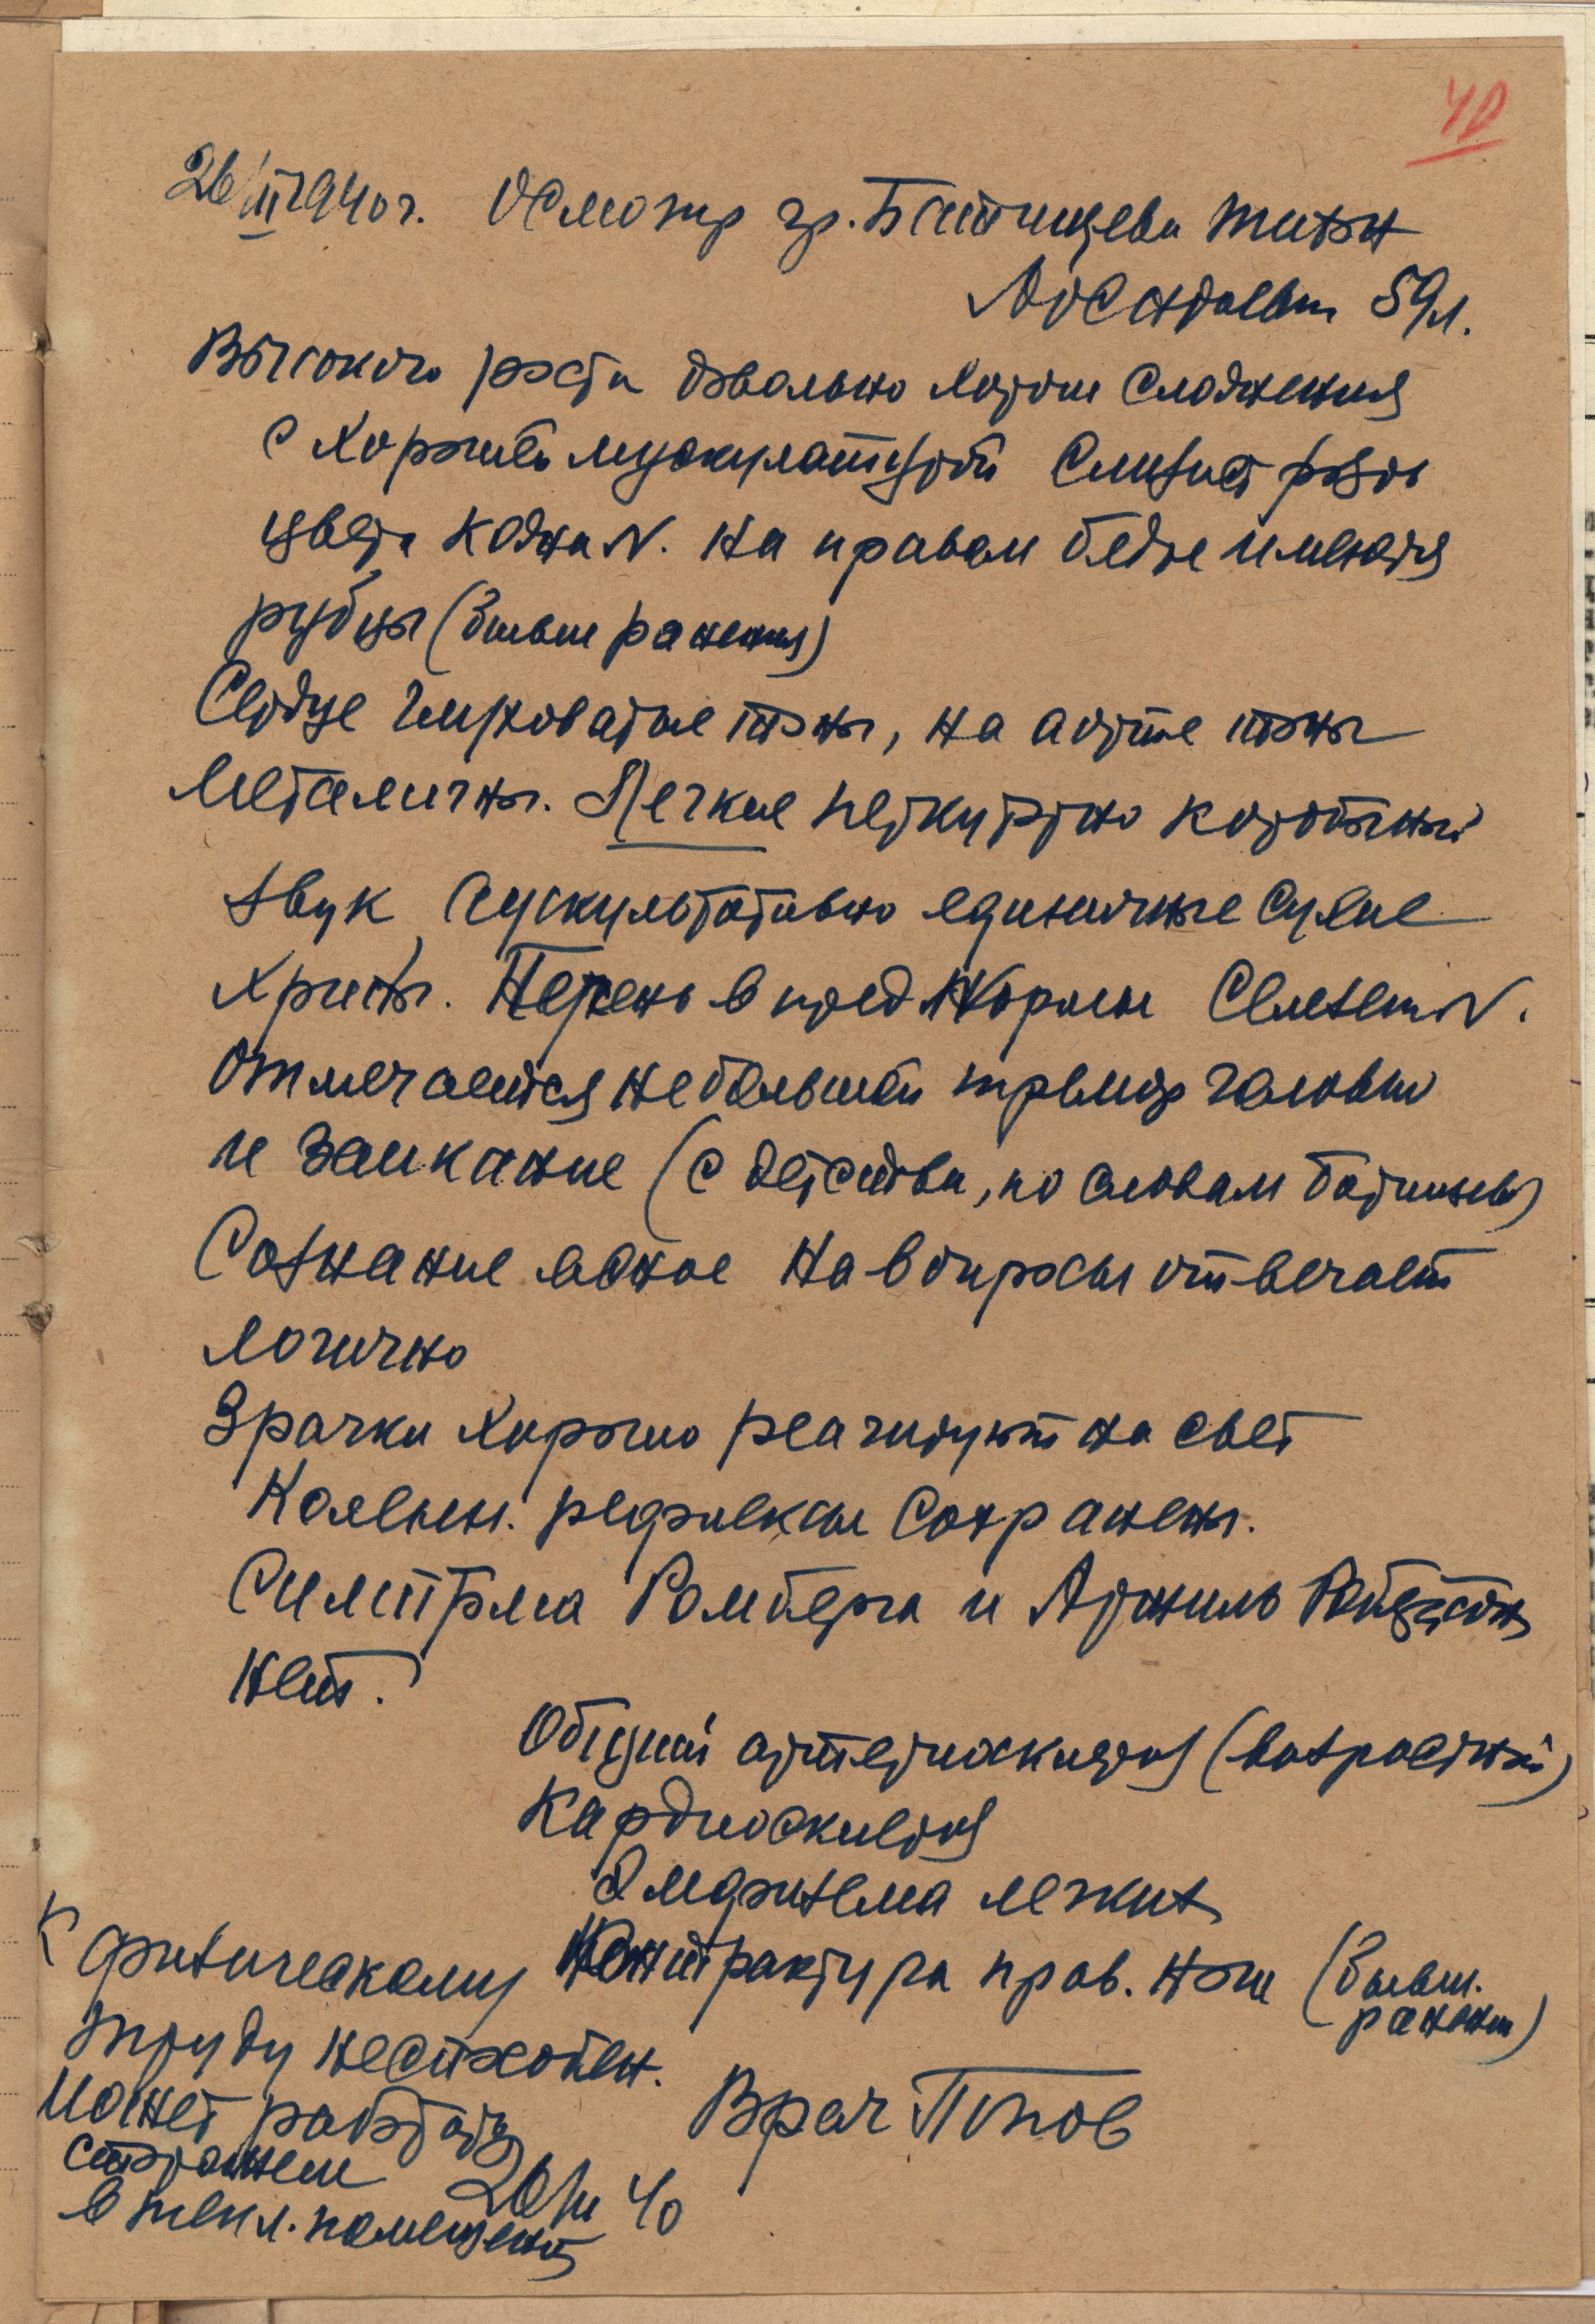 40
26/III 1940 г. Осмотр гр. Батищева
59 л.
Высокого роста довольно хорош сложения
с хорошей мускулатурой Слизист роз
цвета кожа N. На правом бедре имеются
рубцы (бывш ранения)
Сердце глуховатые тоны, на аорте тоны
металичны. Легкие перкуторно коробочный
звук Аускультативно единичные сухие
хрипы. Печень в пред нормы Селезен N.
Отмечается небольшой тремор головы
и заикание (с детства, по словам Батищев)
Сознание ясное На вопросы отвечает
логично
Зрачки хорошо реагируют на свет
Колен. рефлексы сохранены.
Симптома Ромберга и Аргиль Робертсон
нет.
Общий артериосклероз (возрастной)
Кардиосклероз
Эмфизема легких
Контрактура прав. ноги (бывш.
ранения)
К физическому
труду неспособен.
Может работать
сторожем
в тепл. помещении
Врач Попов
26/III 40